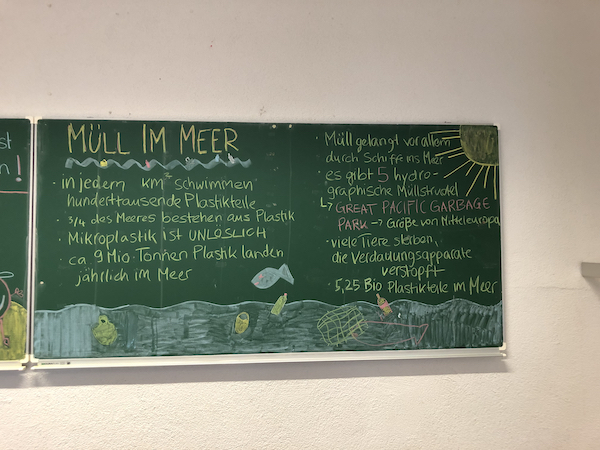 st
n!
MÜLL IM MEER
· in jedem km² schwimmen
hunderttausende Plastikteile
· 3/4 des Meeres bestehen aus Plastik
· Mikroplastik ist UNLÖSLICH
· ca 9 Mio. Tonnen Plastik landen
jährlich im Meer
· Müll gelangt vor allem
durch Schiffe ins Meer
· es gibt 5 hydro-
graphische Müllstrudel
↳ GREAT PACIFIC GARBAGE
PARK → Größe von Mitteleuropa
· viele Tiere sterben,
die Verdauungsapparate
verstopft
· 5,25 Bio Plastikteile im Meer